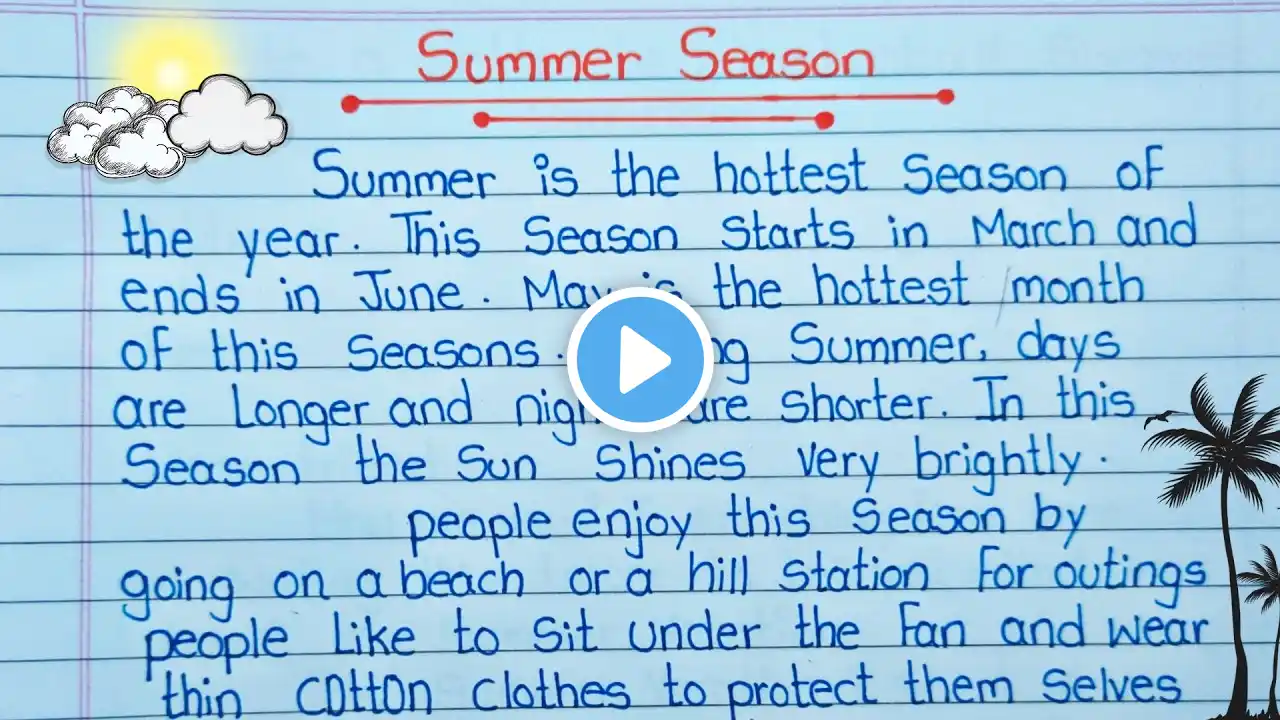 Summer Season
Summer is the hottest season of
the year. This season starts in March and
ends in June. May is the hottest month
of this seasons. Summer, days
are longer and are shorter. In this
season the sun shines very brightly.
people enjoy this season by
going on a beach or a hill station for outings
people like to sit under the fan and wear
thin cotton clothes to protect them selves